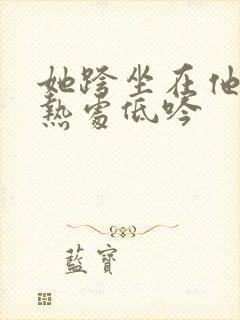 她跨坐在他
熱處低吟
藍寶